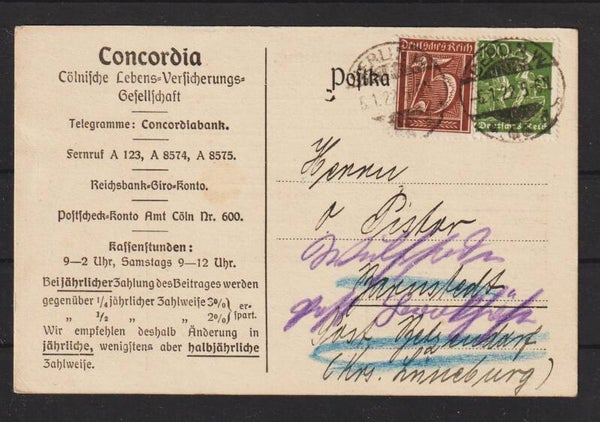 Concordia
Cölnische Lebens-Versicherungs-
Gesellschaft
Telegramme: Concordiabank.
Fernruf A 123, A 8574, A 8575.
Reichsbank-Giro-Konto.
Postscheck-Konto Amt Cöln Nr. 600.
Kassenstunden:
9—2 Uhr, Samstags 9—12 Uhr.
Bei jährlicher Zahlung des Beitrages werden
gegenüber 1/4 jährlicher Zahlweise 3% er-
„ 1/2 „ „ 2% spart.
Wir empfehlen deshalb Änderung in
jährliche, wenigstens aber halbjährliche
Zahlweise.
Postka
Deutsches Reich
25
Deutsches Reich
Herrn
Pistor
Barnstedt
Post
(Krs. Lüneburg)